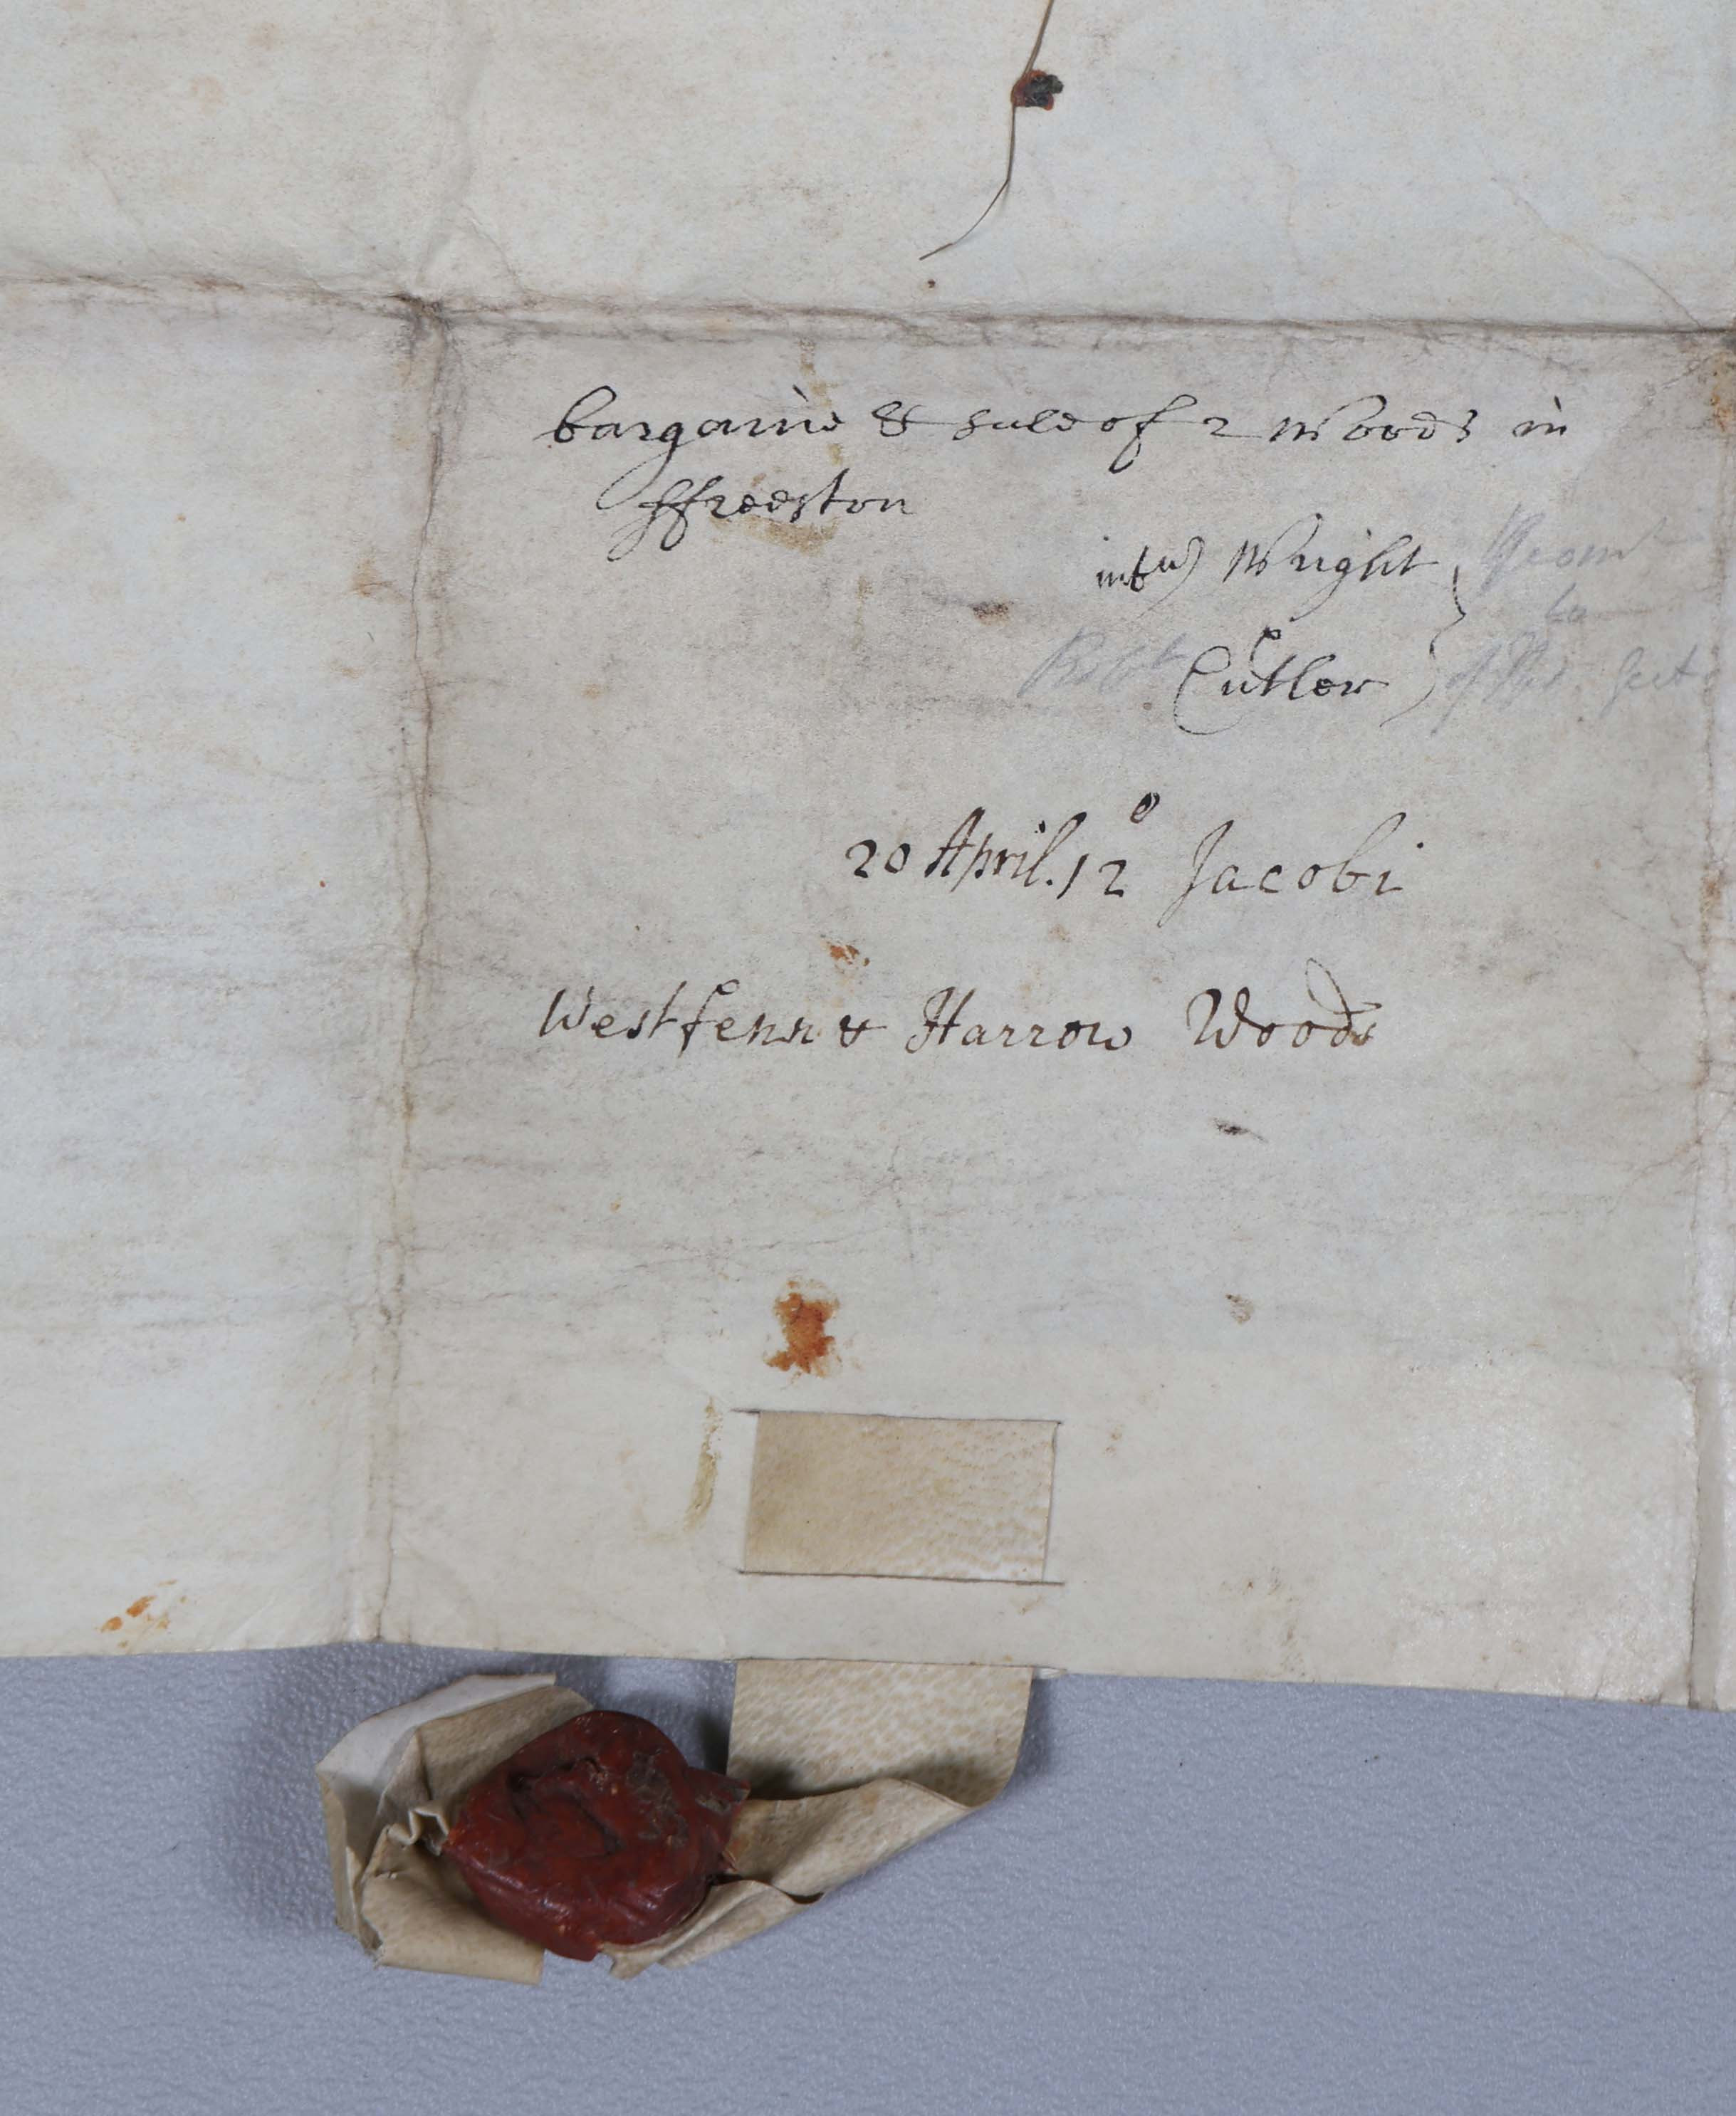 bargaine & sale of 2 Woods in
ffreeston
int Wright
Robt Cutler
20 April. 12° Jacobi
Westfenn & Harrow Woods